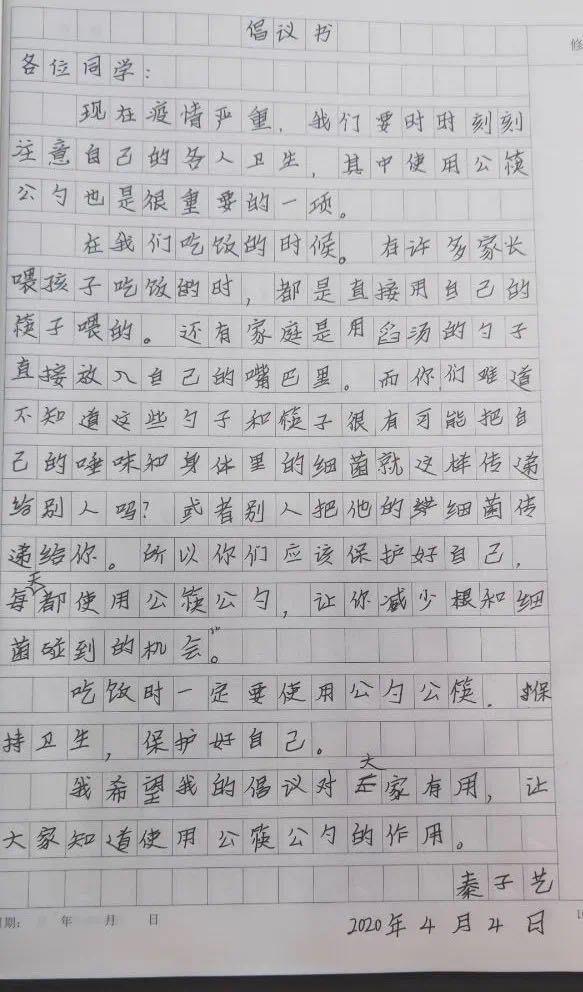 倡议书
修
各位同学:
现在疫情严重,我们要时时刻刻
注意自己的各人卫生,其中使用公筷
公勺也是很重要的一项。
在我们吃饭的时候。有许多家长
喂孩子吃饭的时,都是直接用自己的
筷子喂的。还有家庭是用舀汤的勺子
直接放入自己的嘴巴里。而你们难道
不知道这些勺子和筷子很有可能把自
己的唾味和身体里的细菌就这样传递
给别人吗?或者别人把他的细菌传
递给你。所以你们应该保护好自己,
每天都使用公筷公勺,让你减少根和细
菌碰到的机会。
吃饭时一定要使用公勺公筷.保
持卫生,保护好自己。
我希望我的倡议对大家有用,让
大家知道使用公筷公勺的作用。
秦子艺
日期: 年 月 日
2020年4月4日